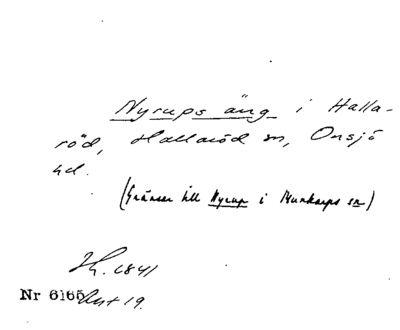 Nyrups äng i Halla-
röd, Hallaröd sn, Onsjö
hd.
(Gränser till Nyrup i Munkarps sn)
Lh. 1841
Nr 6165 Akt 19.